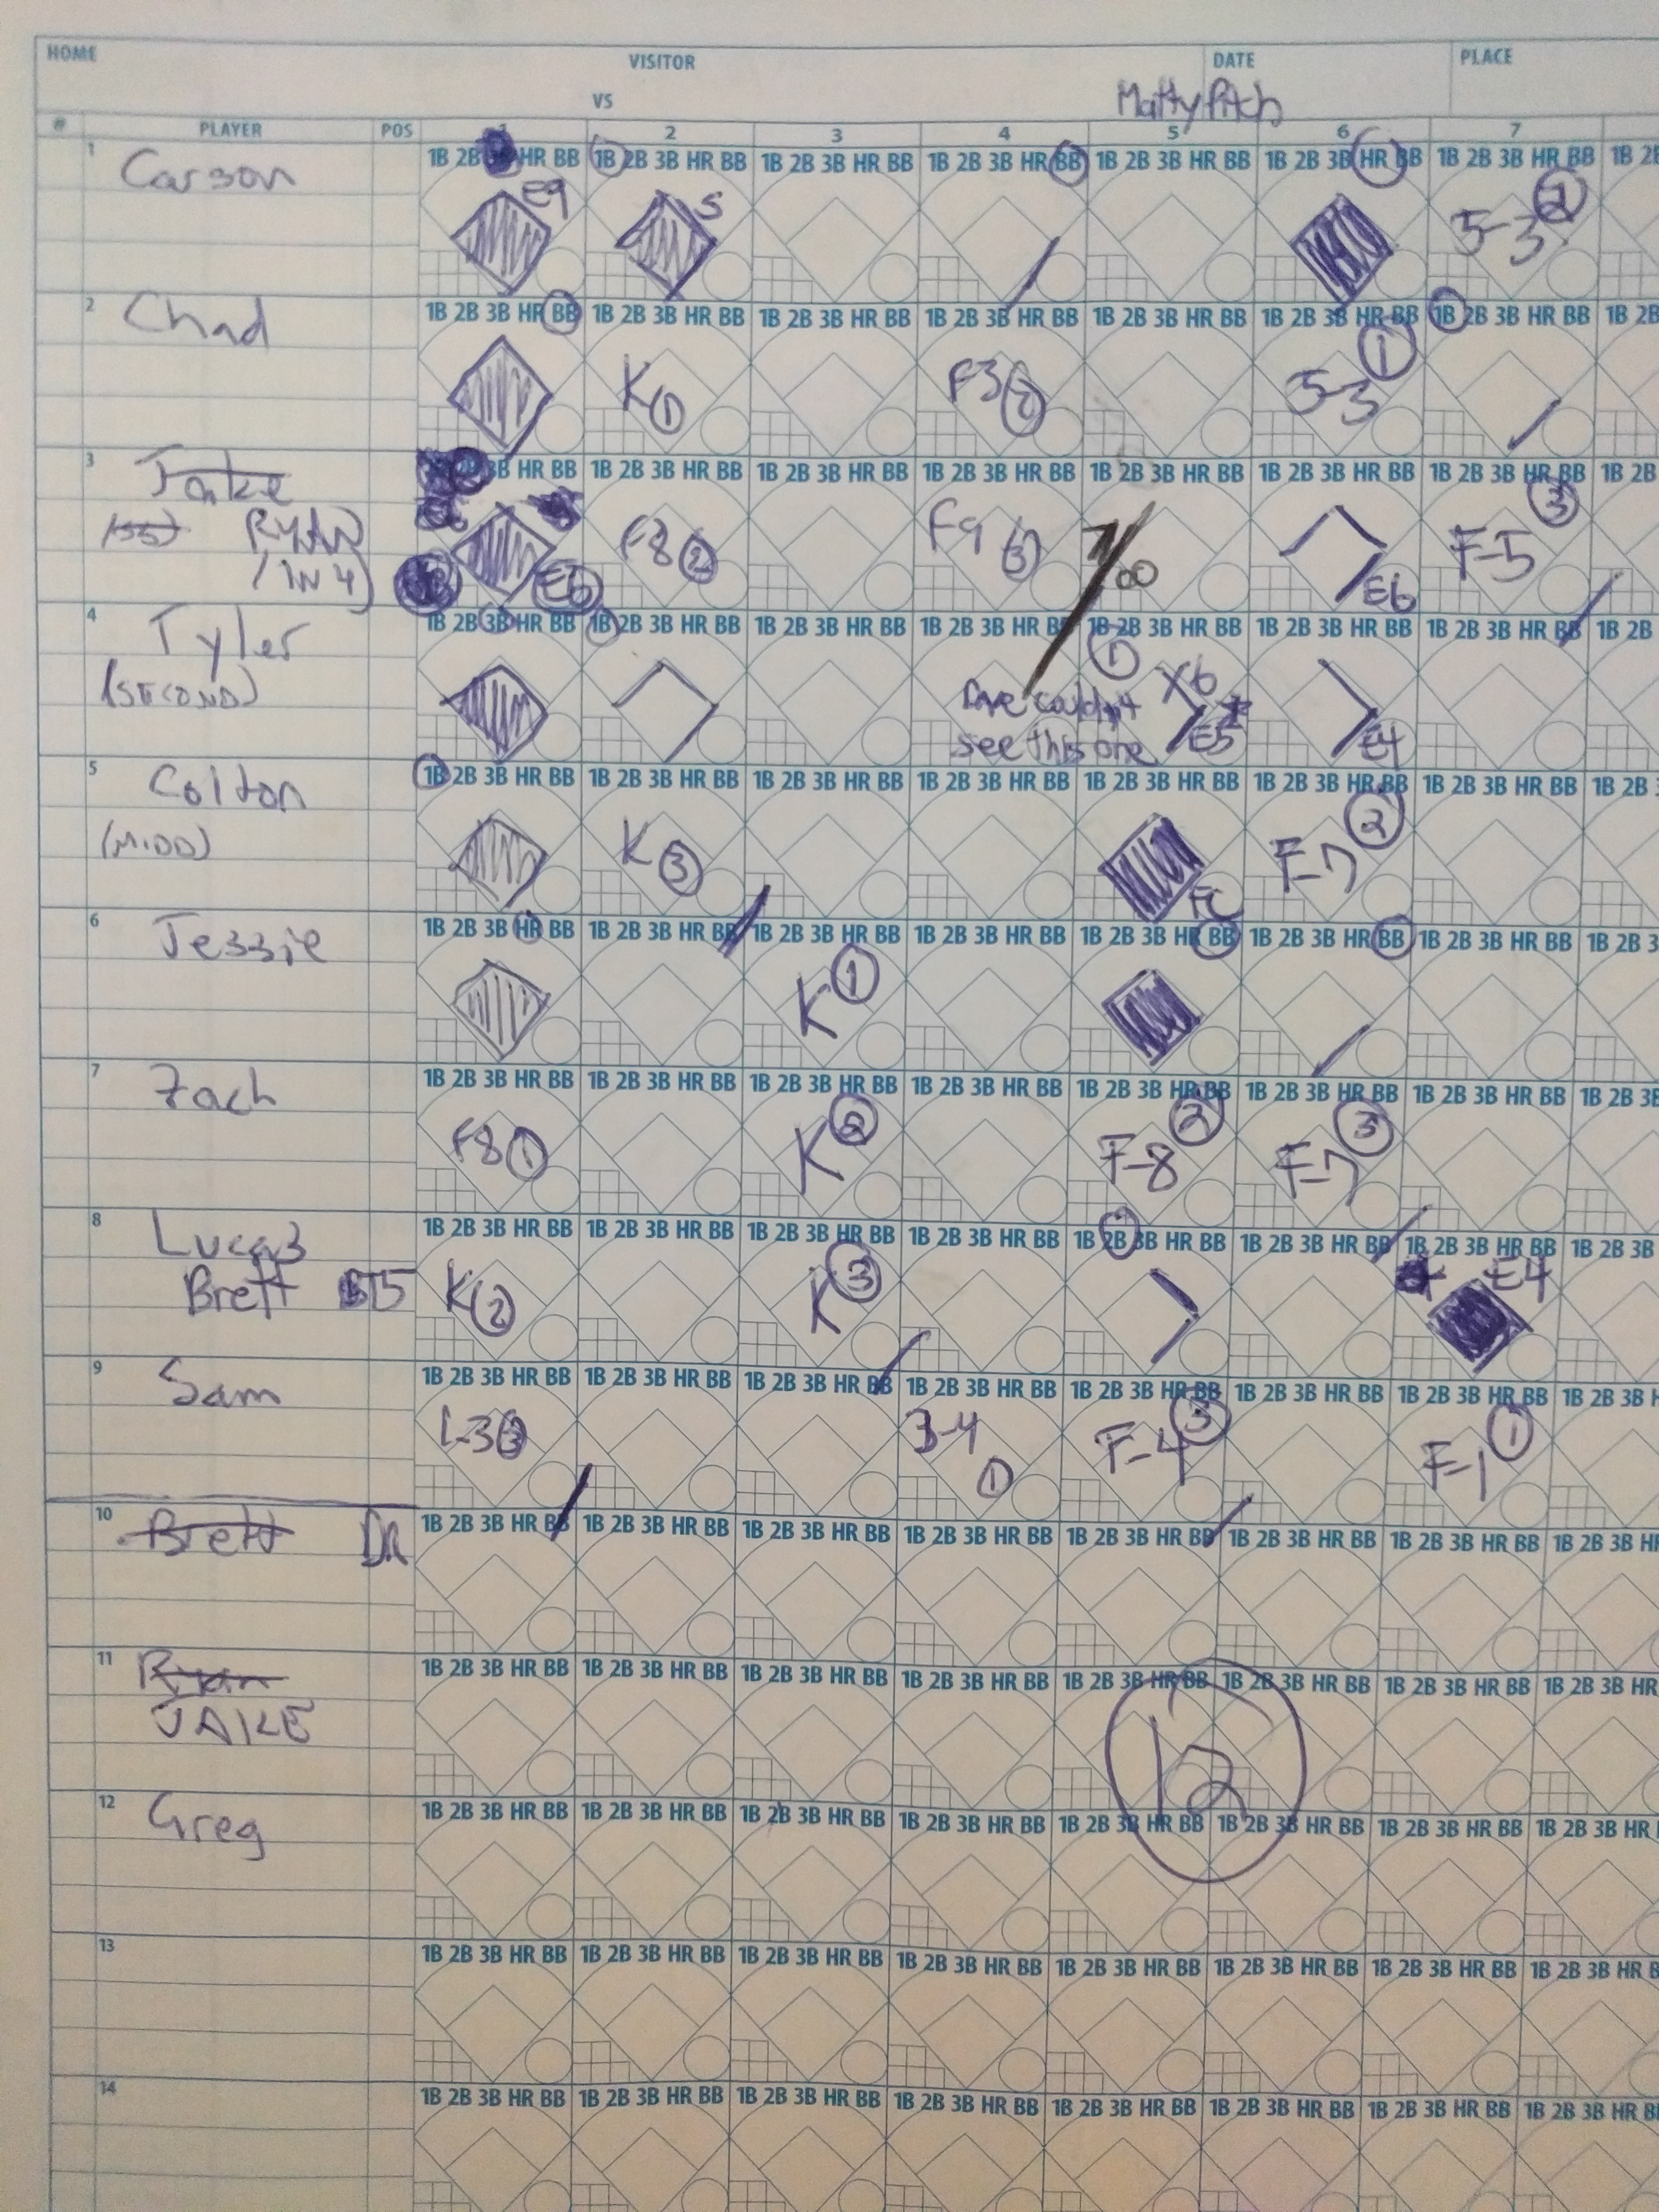 HOME VISITOR DATE PLACE
VS Matty Pitch
# PLAYER POS 2 3 4 5 6 7
1 1B 2B HR BB 1B 2B 3B HR BB 1B 2B 3B HR BB 1B 2B 3B HR BB 1B 2B 3B HR BB 1B 2B 3B HR BB 1B 2B 3B HR BB 1B 2B
Carson E9 S 5-3 2
2 1B 2B 3B HR BB 1B 2B 3B HR BB 1B 2B 3B HR BB 1B 2B 3B HR BB 1B 2B 3B HR BB 1B 2B 3B HR BB 1B 2B 3B HR BB 1B 2B
Chad K 1 F3 2 5-3 1
3 3B HR BB 1B 2B 3B HR BB 1B 2B 3B HR BB 1B 2B 3B HR BB 1B 2B 3B HR BB 1B 2B 3B HR BB 1B 2B 3B HR BB 1B 2B
Jake
(1st) RYAN E6 F8 2 F9 3 E6 F-5 3
(IN 4)
4 1B 2B 3B HR BB 1B 2B 3B HR BB 1B 2B 3B HR BB 1B 2B 3B HR BB 1B 2B 3B HR BB 1B 2B 3B HR BB 1B 2B 3B HR BB 1B 2B
Tyler 1
(SECOND) Dave couldn't X6
see this one E5 E4
5 1B 2B 3B HR BB 1B 2B 3B HR BB 1B 2B 3B HR BB 1B 2B 3B HR BB 1B 2B 3B HR BB 1B 2B 3B HR BB 1B 2B 3B HR BB 1B 2B
Colton
(MIDD) K 3 FC F-7 2
6 1B 2B 3B HR BB 1B 2B 3B HR BB 1B 2B 3B HR BB 1B 2B 3B HR BB 1B 2B 3B HR BB 1B 2B 3B HR BB 1B 2B 3B HR BB 1B 2B 3
Jessie K 1
7 1B 2B 3B HR BB 1B 2B 3B HR BB 1B 2B 3B HR BB 1B 2B 3B HR BB 1B 2B 3B HR BB 1B 2B 3B HR BB 1B 2B 3B HR BB 1B 2B 3B
Zach F8 1 K 2 F-8 2 F-7 3
8 1B 2B 3B HR BB 1B 2B 3B HR BB 1B 2B 3B HR BB 1B 2B 3B HR BB 1B 2B 3B HR BB 1B 2B 3B HR BB 1B 2B 3B HR BB 1B 2B 3B
Lucas
Brett K 2 K 3 E4
9 1B 2B 3B HR BB 1B 2B 3B HR BB 1B 2B 3B HR BB 1B 2B 3B HR BB 1B 2B 3B HR BB 1B 2B 3B HR BB 1B 2B 3B HR BB 1B 2B 3B H
Sam L-3 3 3-4 1 F-4 3 F-1 1
10 1B 2B 3B HR BB 1B 2B 3B HR BB 1B 2B 3B HR BB 1B 2B 3B HR BB 1B 2B 3B HR BB 1B 2B 3B HR BB 1B 2B 3B HR BB 1B 2B 3B HR
Brett
11 1B 2B 3B HR BB 1B 2B 3B HR BB 1B 2B 3B HR BB 1B 2B 3B HR BB 1B 2B 3B HR BB 1B 2B 3B HR BB 1B 2B 3B HR BB 1B 2B 3B HR
Ryan
JAKE 12
12 1B 2B 3B HR BB 1B 2B 3B HR BB 1B 2B 3B HR BB 1B 2B 3B HR BB 1B 2B 3B HR BB 1B 2B 3B HR BB 1B 2B 3B HR BB 1B 2B 3B HR
Greg
13 1B 2B 3B HR BB 1B 2B 3B HR BB 1B 2B 3B HR BB 1B 2B 3B HR BB 1B 2B 3B HR BB 1B 2B 3B HR BB 1B 2B 3B HR BB 1B 2B 3B HR B
14 1B 2B 3B HR BB 1B 2B 3B HR BB 1B 2B 3B HR BB 1B 2B 3B HR BB 1B 2B 3B HR BB 1B 2B 3B HR BB 1B 2B 3B HR BB 1B 2B 3B HR B